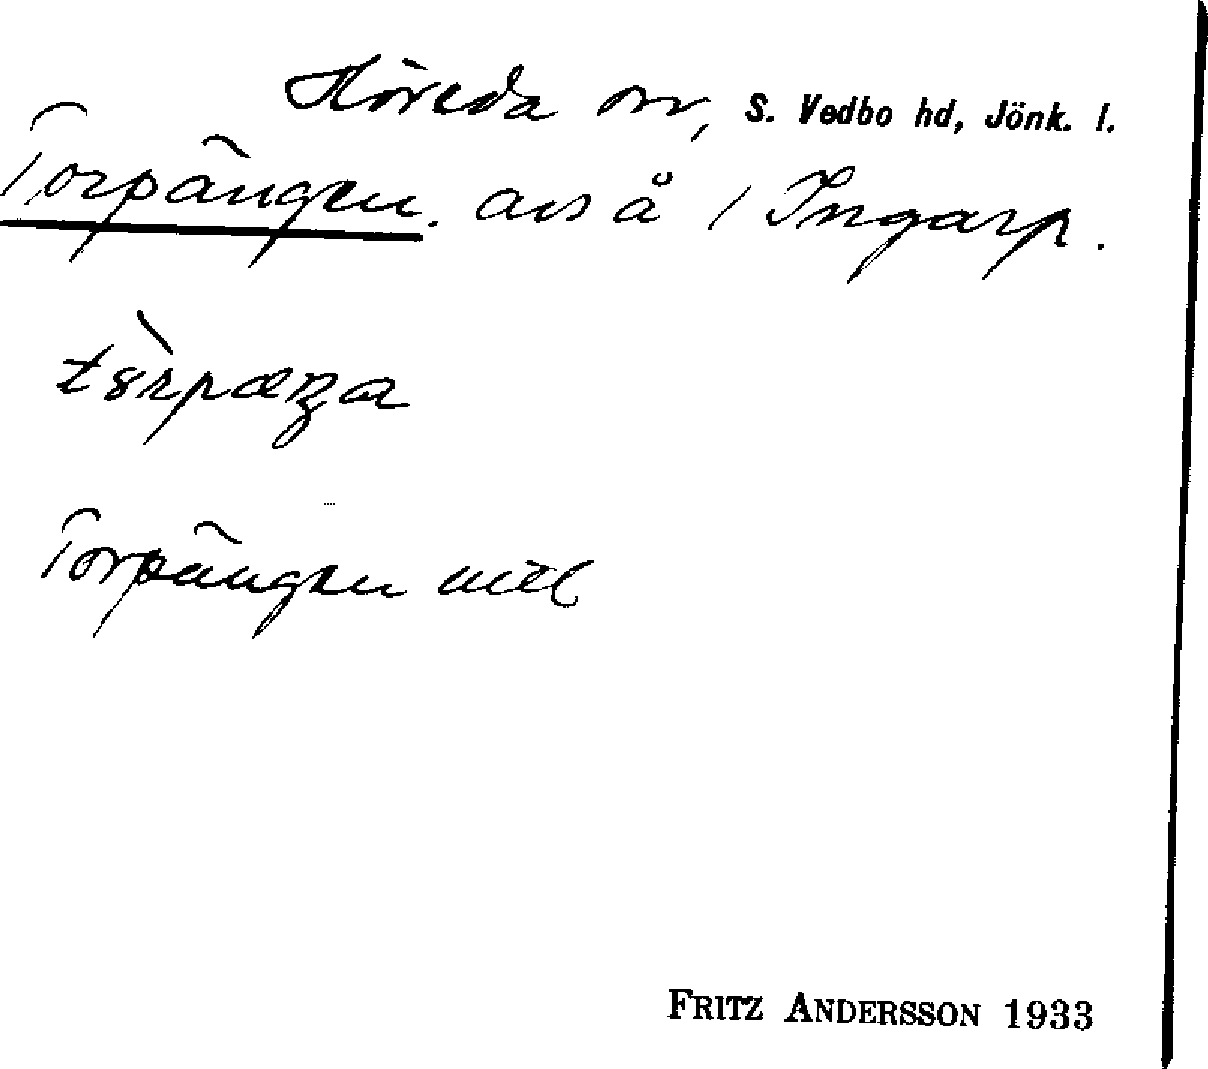 Höreda sn, S. Vedbo hd, Jönk. l.
Torpängen. avs å / Ingarp.
Torpängen
FRITZ ANDERSSON 1933